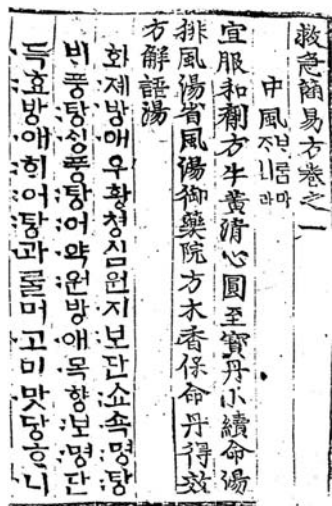 救急簡易方卷之一
中風ᄇᆞᄅᆞᆷ마ᄌᆞ니라
宜服和劑方牛黃清心圓至寶丹小續命湯
排風湯省風湯御藥院方木香保命丹得效
方解語湯
화졔방애우황쳥심원지보단쇼쇽명탕
ᄇᆡ풍탕ᄉᆡᆼ풍탕어약원방애목향보명단
득효방애ᄒᆡ어탕과ᄅᆞᆯ머고미맛당ᄒᆞ니